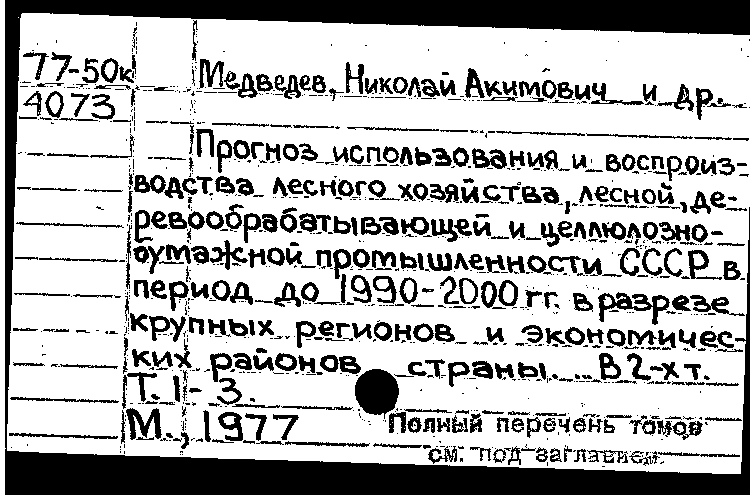 77-50к Медведев, Николай Акимович и др.
4073
Прогноз использования и воспроиз-
водства лесного хозяйства, лесной, де-
ревообрабатывающей и целлюлозно-
бумажной промышленности СССР в
период до 1990-2000 гг. в разрезе
крупных регионов и экономичес-
ких районов страны... В 2-х т.
Т. 1 - 3.
М., 1977
Полный перечень томов
см. под заглавием.